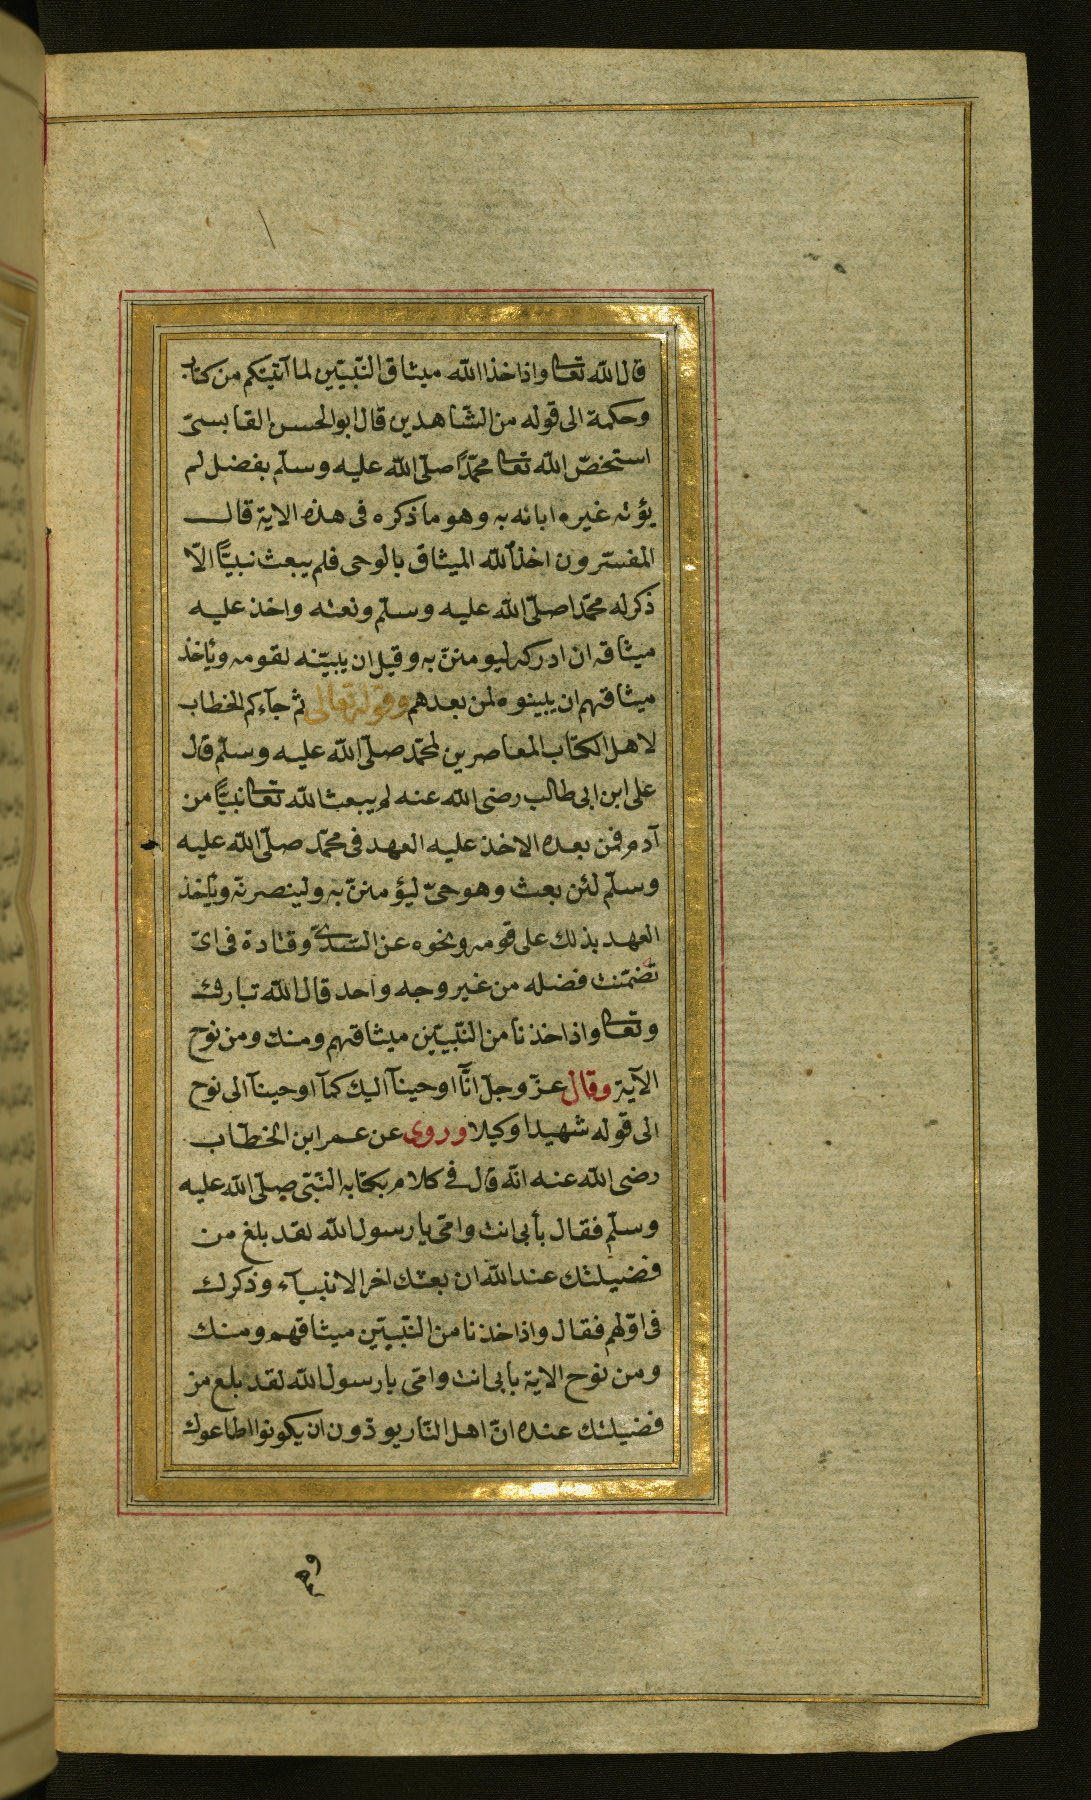 قال الله تعا واذ اخذ الله ميثاق النّبيّين لما آتيتكم من كتاب
وحكمة الى قوله من الشّاهدين قال ابو الحسن القابسىّ
استخصّ الله تعا محمّدًا صلّى الله عليه وسلّم بفضل لم
يؤته غيره ابانه به وهو ما ذكره فى هذه الاية قال
المفسّرون اخذ الله الميثاق بالوحى فلم يبعث نبيًّا الّا
ذكر له محمّدا صلّى الله عليه وسلّم ونعته واخذ عليه
ميثاقه ان ادركه ليومننّ به وقيل ان يبيّنه لقومه ويأخذ
ميثاقهم ان يبينوه لمن بعدهم وقوله تعالى ثم جآءكم الخطاب
لاهل الكتاب المعاصرين لمحمّد صلّى الله عليه وسلّم قال
على ابن ابى طالب رضى الله عنه لم يبعث الله تعا نبيًّا من
آدم فمن بعده الا اخذ عليه العهد فى محمّد صلّى الله عليه
وسلّم لئن بعث وهو حىّ ليؤمننّ به ولينصرنّه ويأخذ
العهد بذلك على قومه ونحوه عن السّدّى وقتادة فى اىّ
تضمّنت فضله من غير وجه واحد قال الله تبارك
وتعا واذ اخذنا من النّبيّين ميثاقهم ومنك ومن نوح
الآية وقال عزّ وجلّ انّآ اوحينآ اليك كمآ اوحينآ الى نوح
الى قوله شهيدا وكيلا وروى عن عمر ابن الخطاب
رضى الله عنه انّه قال فى كلام بكى به النّبىّ صلّى الله عليه
وسلّم فقال بأبى انت وامّى يا رسول الله لقد بلغ من
فضيلتك عند الله ان بعثك اخر الانبيآء وذكرك
فى اوّلهم فقال واذ اخذنا من النّبيّين ميثاقهم ومنك
ومن نوح الاية بابى انت وامّى يا رسول الله لقد بلغ من
فضيلتك عنده انّ اهل النّار يودّون ان يكونوا اطاعوك
وهم